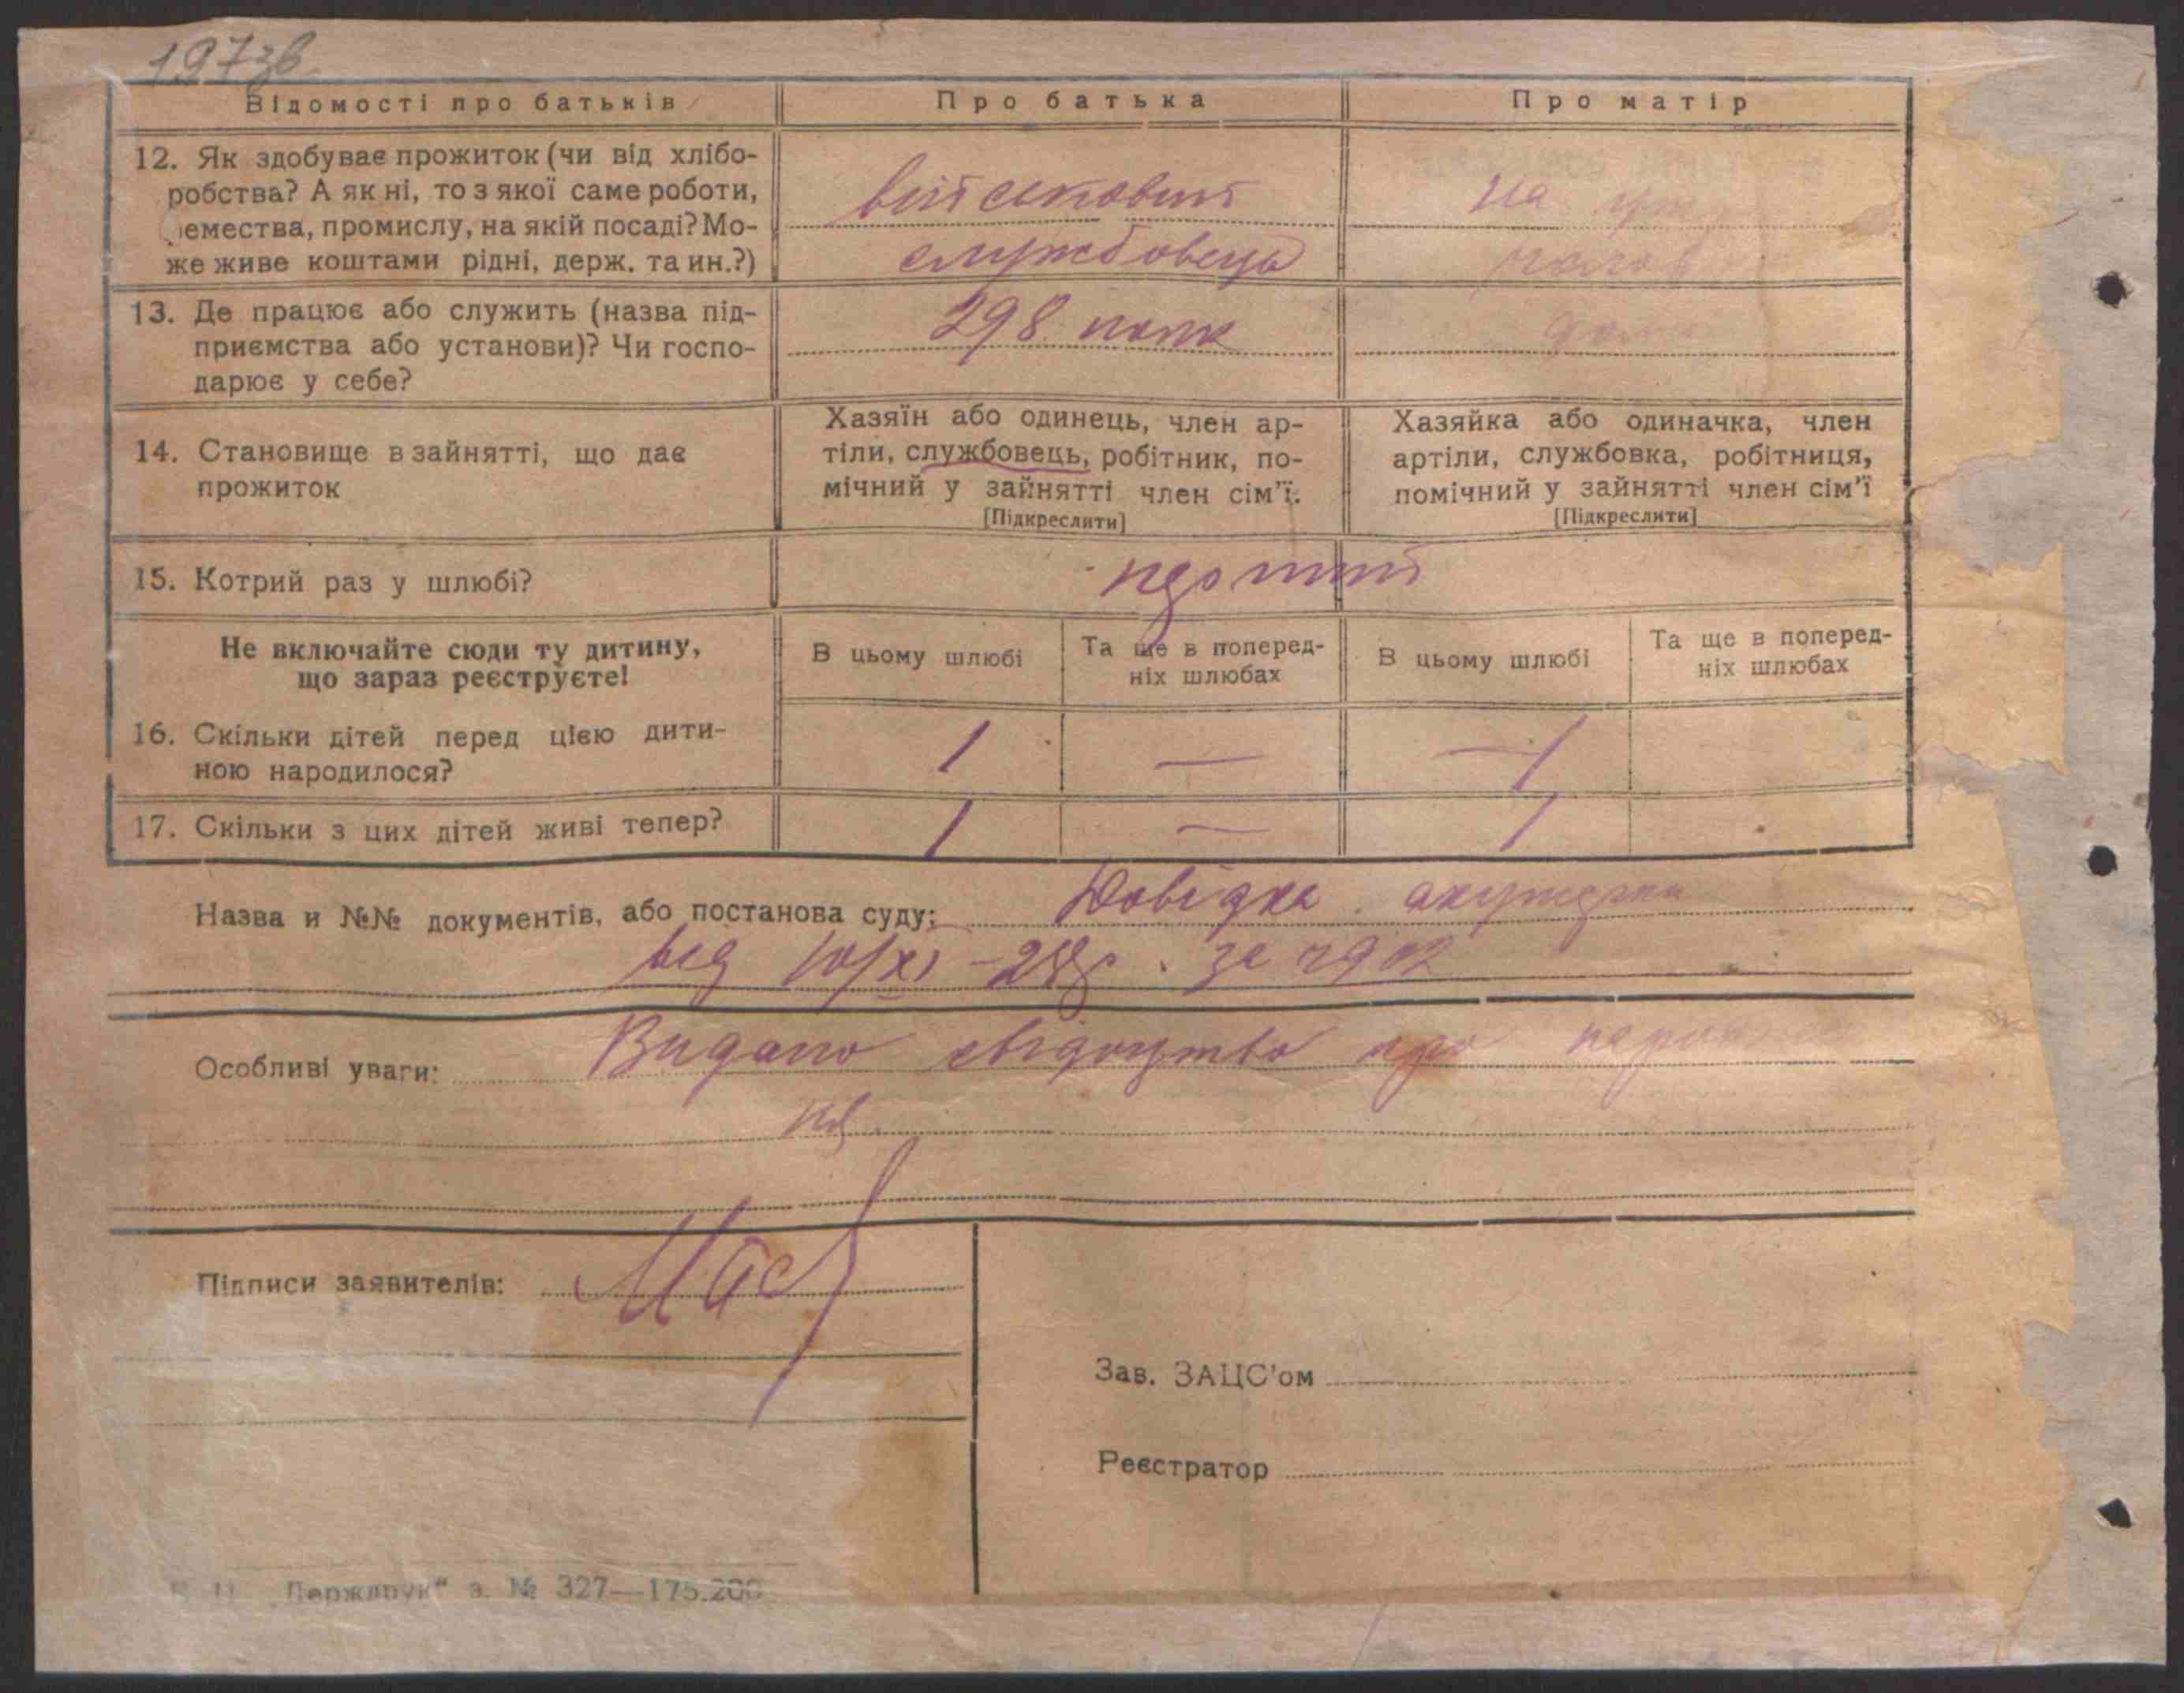 197зв
Відомості про батьків
Про батька
Про матір
12. Як здобуває прожиток (чи від хлібо-
робства? А як ні, то з якої саме роботи,
ремества, промислу, на якій посаді? Мо-
же живе коштами рідні, держ. та ин.?)
військовий
службовець
На
13. Де працює або служить (назва під-
приємства або установи)? Чи госпо-
дарює у себе?
298 полк
14. Становище в зайнятті, що дає
прожиток
Хазяїн або одинець, член ар-
тіли, службовець, робітник, по-
мічний у зайнятті член сім'ї.
[Підкреслити]
Хазяйка або одиначка, член
артіли, службовка, робітниця,
помічний у зайнятті член сім'ї
[Підкреслити]
15. Котрий раз у шлюбі?
перший
Не включайте сюди ту дитину,
що зараз реєструєте!
В цьому шлюбі
Та ще в поперед-
ніх шлюбах
В цьому шлюбі
Та ще в поперед-
ніх шлюбах
16. Скільки дітей перед цією дити-
ною народилося?
1 — 1
17. Скільки з цих дітей живі тепер?
1 — 1
Назва и №№ документів, або постанова суду: Довідка акушерки
від 10/XI – 28 р. за
Особливі уваги: Видано свідоцтво про
Підписи заявителів:
Зав. ЗАЦС'ом
Реєстратор
"Держдрук" з. № 327—175.200